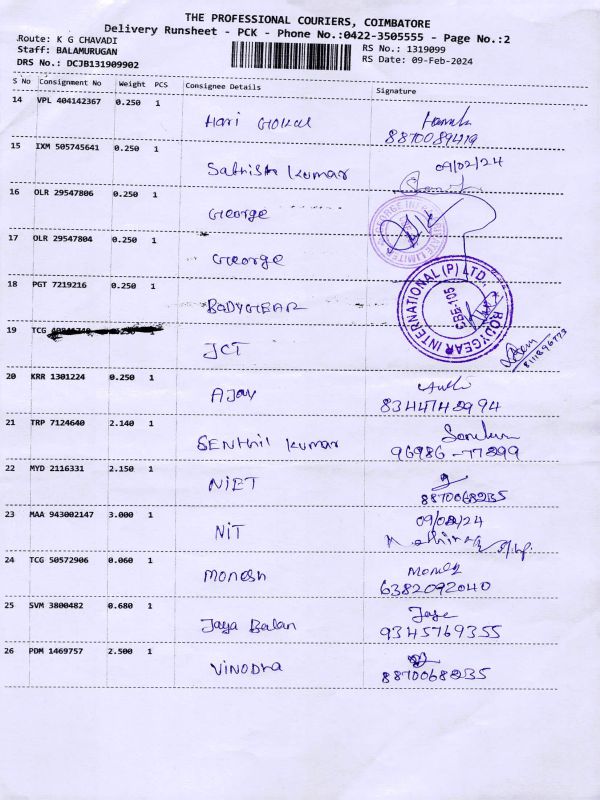 THE PROFESSIONAL COURIERS, COIMBATORE
Delivery Runsheet - PCK - Phone No.:0422-3505555 - Page No.:2
Route: K G CHAVADI
RS No.: 1319099
Staff: BALAMURUGAN
RS Date: 09-Feb-2024
DRS No.: DCJB131909902
S No Consignment No Weight PCS Consignee Details Signature
14 VPL 404142367 0.250 1
Hari Gokul
8870089419
15 IXM 505745641 0.250 1
09/02/24
Sathish Kumar
16 OLR 29547806 0.250 1
George
17 OLR 29547804 0.250 1
George
18 PGT 7219216 0.250 1
BODYGEAR
BODYGEAR INTERNATIONAL (P) LTD
CBE-105
19 TCG 1
JCT
8111896773
20 KRR 1301224 0.250 1
AJAY
8344742994
21 TRP 7124640 2.140 1
SENthil Kumar
96986-77899
22 MYD 2116331 2.150 1
NIET
8870068235
23 MAA 943002147 3.000 1
09/02/24
NIT
24 TCG 50572906 0.060 1
Monesh
6382092040
25 SVM 3800482 0.680 1
Jaya Balan
9345769355
26 PDM 1469757 2.500 1
VINODHA
8870068235